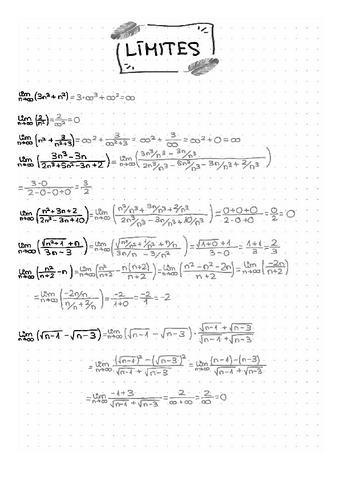 LÍMITES
lim n→∞ (3n³+n²) = 3·∞³+∞² = ∞
lim n→∞ (2/n²) = 2/∞² = 0
lim n→∞ (n²+3/(n²+3)) = ∞²+3/(∞²+3) = ∞²+3/∞ = ∞²+0 = ∞
lim n→∞ ((3n³-3n)/(2n³+5n²-3n+2)) = lim n→∞ ((3n³/n³-3n/n³)/(2n³/n³-5n²/n³-3n/n³+2/n³))
= (3-0)/(2-0-0+0) = 3/2
lim n→∞ ((n²+3n+2)/(2n³-3n+10)) = lim n→∞ (n²/n³+3n/n³+2/n³)/(2n³/n³-3n/n³+10/n³) = (0+0+0)/(2-0+0) = 0/2 = 0
lim n→∞ ((√(n²+1)+n)/(3n-3)) = = (√(1+0)+1)/(3-0) = (1+1)/3 = 2/3
lim n→∞ (n²/(n+2)-n) = lim n→∞ (n²/(n+2)-n(n+2)/(n+2)) = lim n→∞ ((n²-n²-2n)/(n+2)) = lim n→∞ (-2n/(n+2))
= lim n→∞ ((-2n/n)/(n/n+2/n)) = -2/(1+0) = -2/1 = -2
lim n→∞ (√(n-1)-√(n-3)) = lim n→∞ (√(n-1)-√(n-3))·(√(n-1)+√(n-3))/(√(n-1)+√(n-3))
= lim n→∞ ((√(n-1))²-(√(n-3))²)/(√(n-1)+√(n-3)) = lim n→∞ ((n-1)-(n-3))/(√(n-1)+√(n-3))
= lim n→∞ (-1+3)/(√(n-1)+√(n-3)) = 2/(∞+∞) = 2/∞ = 0